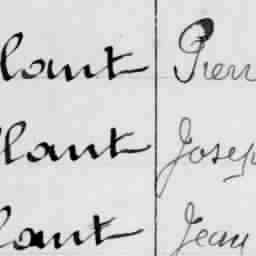 lant Pierr
lant Josep
lant Jean